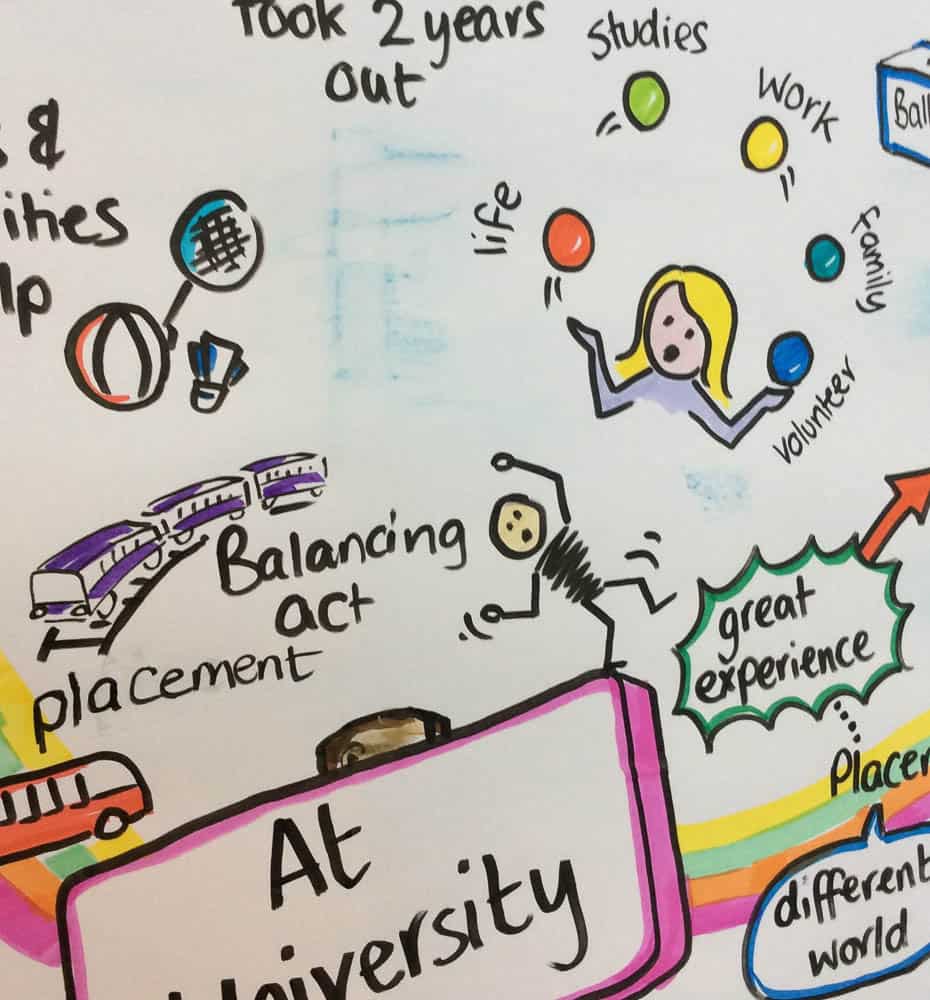 Took 2 years
out
Studies
Work
Ball
&
ities
lp
life
family
volunteer
Balancing
act
placement
great
experience
Placer
At
University
different
world